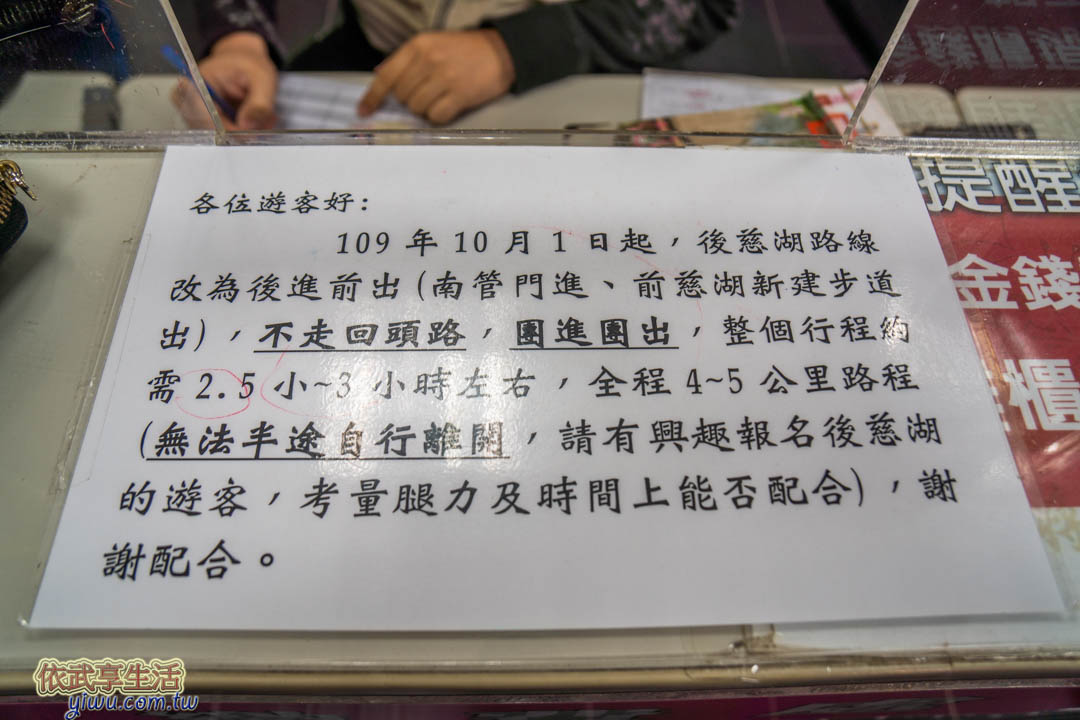 各位遊客好:
109 年 10 月 1 日起，後慈湖路線
改為後進前出(南管門進、前慈湖新建步道
出)，不走回頭路，團進團出，整個行程約
需 2.5 小~3 小時左右，全程 4~5 公里路程
(無法半途自行離開，請有興趣報名後慈湖
的遊客，考量腿力及時間上能否配合)，謝
謝配合。
提醒
金錢
櫃
依武享生活
yiwu.com.tw